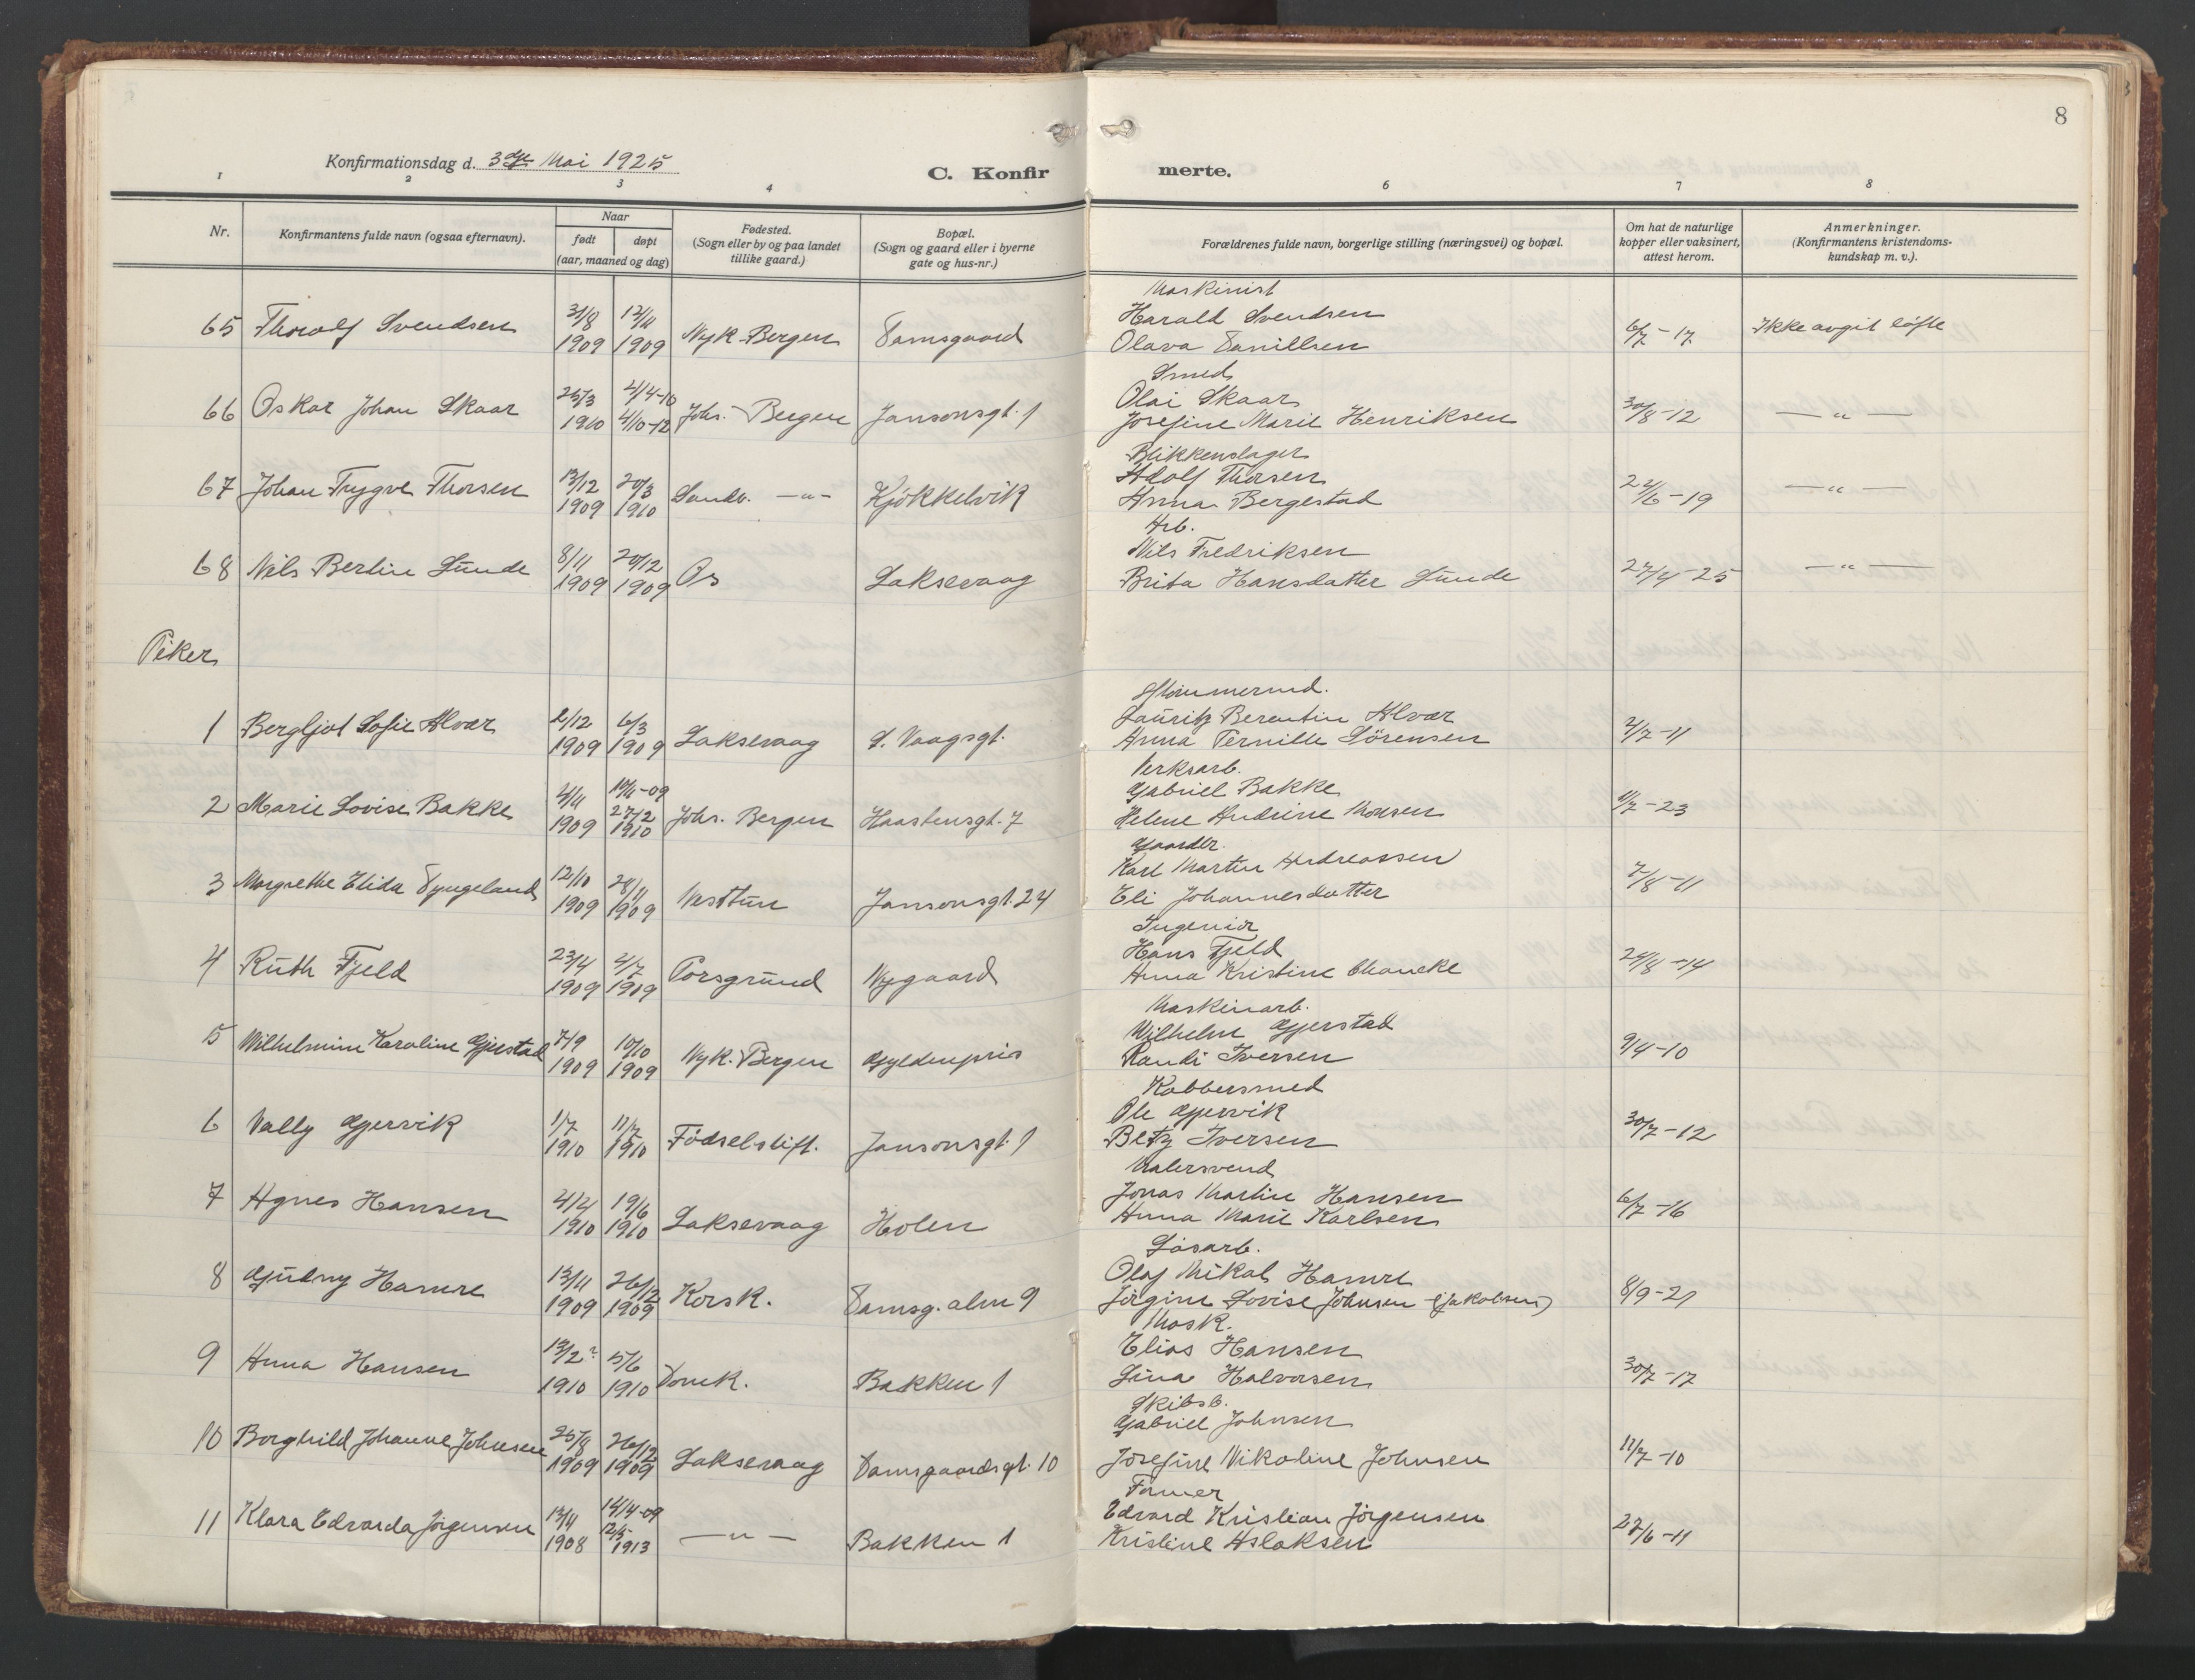 8
Konfirmationsdag d. 3dje Mai 1925
C. Konfirmerte.
1 2 3 4 6 7 8
Nr.
Konfirmantens fulde navn (ogsaa efternavn).
Naar
født døpt
(aar, maaned og dag)
Fødested.
(Sogn eller by og paa landet
tillike gaard.)
Bopæl.
(Sogn og gaard eller i byerne
gate og hus-nr.)
Forældrenes fulde navn, borgerlige stilling (næringsvei) og bopæl.
Om hat de naturlige
kopper eller vaksinert,
attest herom.
Anmerkninger.
(Konfirmantens kristendoms-
kundskap m. v.).
Maskinist
65 Thoralf Svendsen 31/8 1909 12/11 1909 Nyk. Bergen Damsgaard Harald Svendsen 6/7-17 Ikke avgit løfte
Olava Danillsen
Smed
66 Oskar Johan Skaar 25/3 1910 4/10-12 Johs. Bergen Jansonsgt. 1 Olai Skaar 30/8-12 — " —
Josefine Marie Henriksen
Blikkenslager
67 Johan Trygve Thorsen 13/12 1909 20/3 1910 Sandv. — " — Kjøkkelvik Adolf Thorsen 22/6-19 — " —
Anna Bergestad
Arb.
68 Nils Bertin Lunde 8/11 1909 20/12 1909 Os Laksevaag Nils Fredriksen 27/4-25 — " —
Brita Hansdatter Lunde
Piker
1 Bergljot Sofie Alvær 2/12 1909 6/3 1909 Laksevaag L. Vaagsgt. Lauritz Berentin Alvær 4/7-11
Anna Pernille Sörensen
Verksarb.
2 Marie Lovise Bakke 4/11 1909 27/2 1910 Johs. Bergen Haastensgt. 7 Gabriel Bakke
Helene Andrine Monsen
Gaardbr.
3 Margrethe Elida Tyngeland 12/10 1909 28/11 1909 Nesttun Jansonsgt. 24 Karl Martin Andreassen 7/8-11
Eli Johannesdatter
Ingeniør
4 Ruth Fjeld 23/4 1909 4/7 1909 Porsgrund Nygaard Hans Fjeld 24/8-14
Anna Kristine
Maskinarb.
5 Wilhelmine Karoline Gjerstad 7/9 1909 10/10 1909 Nyk. Bergen Gyldenpris Wilhelm Gjerstad 9/4-10
Randi Iversen
Kobbersmed
6 Vally Gjervik 1/7 1910 11/7 1910 Fødselsstift. Jansonsgt. 1 Ole Gjervik 30/7-12
Betzy Iversen
Malersvend
7 Agnes Hansen 4/4 1910 19/6 1910 Laksevaag Holen Jonas Martin Hansen 6/7-16
Anna Marie Karlsen
Løsarb.
8 Gudny Hamre 13/11 1909 26/12 1909 Korsk. Damsg. alm 9 Olaf Mikal Hamre 8/9-21
Jörgine Lovise Johnsen (Jakobsen)
Mask.
9 Anna Hansen 13/2? 1910 5/6 1910 Domk. Bakken 1 Elias Hansen 30/7-17
Lina Halvorsen
Skibsb.
10 Borghild Johanne Johnsen 25/8 1909 26/12 1909 Laksevaag Damsgaardsgt. 10 Gabriel Johnsen 11/7-10
Josefine Nikoline Johnsen
Former
11 Klara Edvarda Jörgensen 13/11 1908 14/4-09 12/5 1913 — " — Bakken 1 Edvard Kristian Jörgensen 27/6-11
Kristine Aslaksen